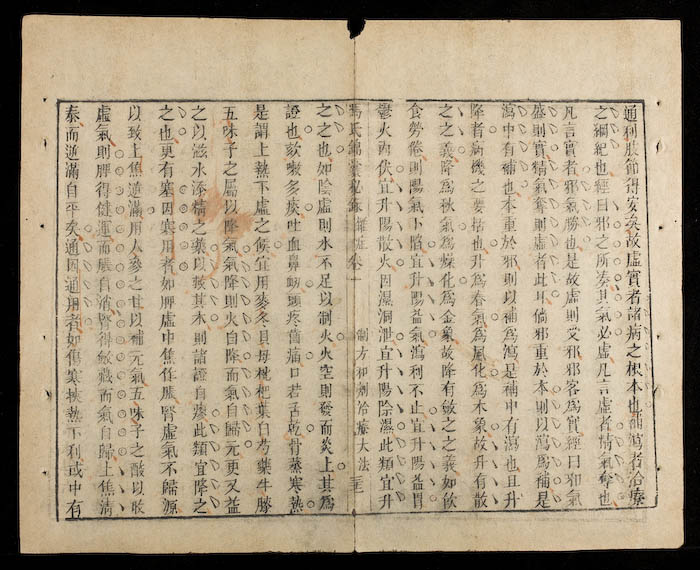 通利肢節得安矣故虛實者諸病之根本也補瀉者治療
之綱紀也經曰邪之所湊其氣必虛凡言虛者精氣奪也
凡言實者邪氣勝也是故虛則受邪邪客爲實經曰邪氣
盛則實精氣奪則虛者此耳倘邪重於本則以瀉爲補是
瀉中有補也本重於邪則以補爲瀉是補中有瀉也且升
降者病機之要括也升爲春氣爲風化爲木象故升有散
之之義降爲秋氣爲燥化爲金象故降有斂之之義如飲
食勞倦則陽氣下陷宜升陽益氣瀉利不止宜升陽益胃
鬱火內伏宜升陽散火因濕洞泄宜升陽除濕此類宜升
馮氏錦囊秘錄 雜症卷一 制方和劑治療大法
之之也如陰虛則水不足以制火火空則發而炎上其爲
證也欬嗽多痰吐血鼻衂頭疼齒痛口苦舌乾骨蒸寒熱
是謂上熱下虛之候宜用麥冬貝母枇杷葉白芍藥牛膝
五味子之屬以降氣氣降則火自降而氣自歸元更又益
之以滋水添精之藥以救其本則諸證自瘳此類宜降之
之也更有塞因塞用者如脾虛中焦作脹腎虛氣不歸源
以致上焦逆滿用人參之甘以補元氣五味子之酸以收
虛氣則脾得健運而脹自消腎得斂藏而氣自歸上焦清
泰而逆滿自平矣通因通用者如傷寒挾熱下利或中有